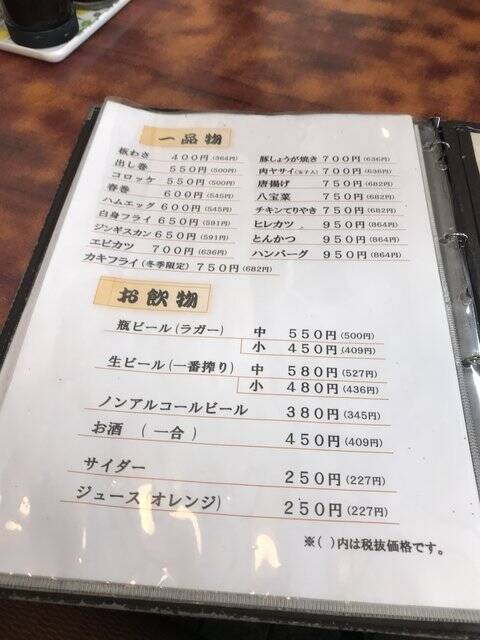 一品物
板わさ 400円(364円)
出し巻 550円(500円)
コロッケ 550円(500円)
春巻 600円(545円)
ハムエッグ 600円(545円)
白身フライ 650円(591円)
ジンギスカン 650円(591円)
エビカツ 700円(636円)
カキフライ(冬季限定) 750円(682円)
豚しょうが焼き 700円(636円)
肉ヤサイ(玉子入) 700円(636円)
唐揚げ 750円(682円)
八宝菜 750円(682円)
チキンてりやき 750円(682円)
ヒレカツ 950円(864円)
とんかつ 950円(864円)
ハンバーグ 950円(864円)
お飲物
瓶ビール(ラガー) 中 550円(500円)
小 450円(409円)
生ビール(一番搾り) 中 580円(527円)
小 480円(436円)
ノンアルコールビール 380円(345円)
お酒 (一合) 450円(409円)
サイダー 250円(227円)
ジュース(オレンジ) 250円(227円)
※( )内は税抜価格です。